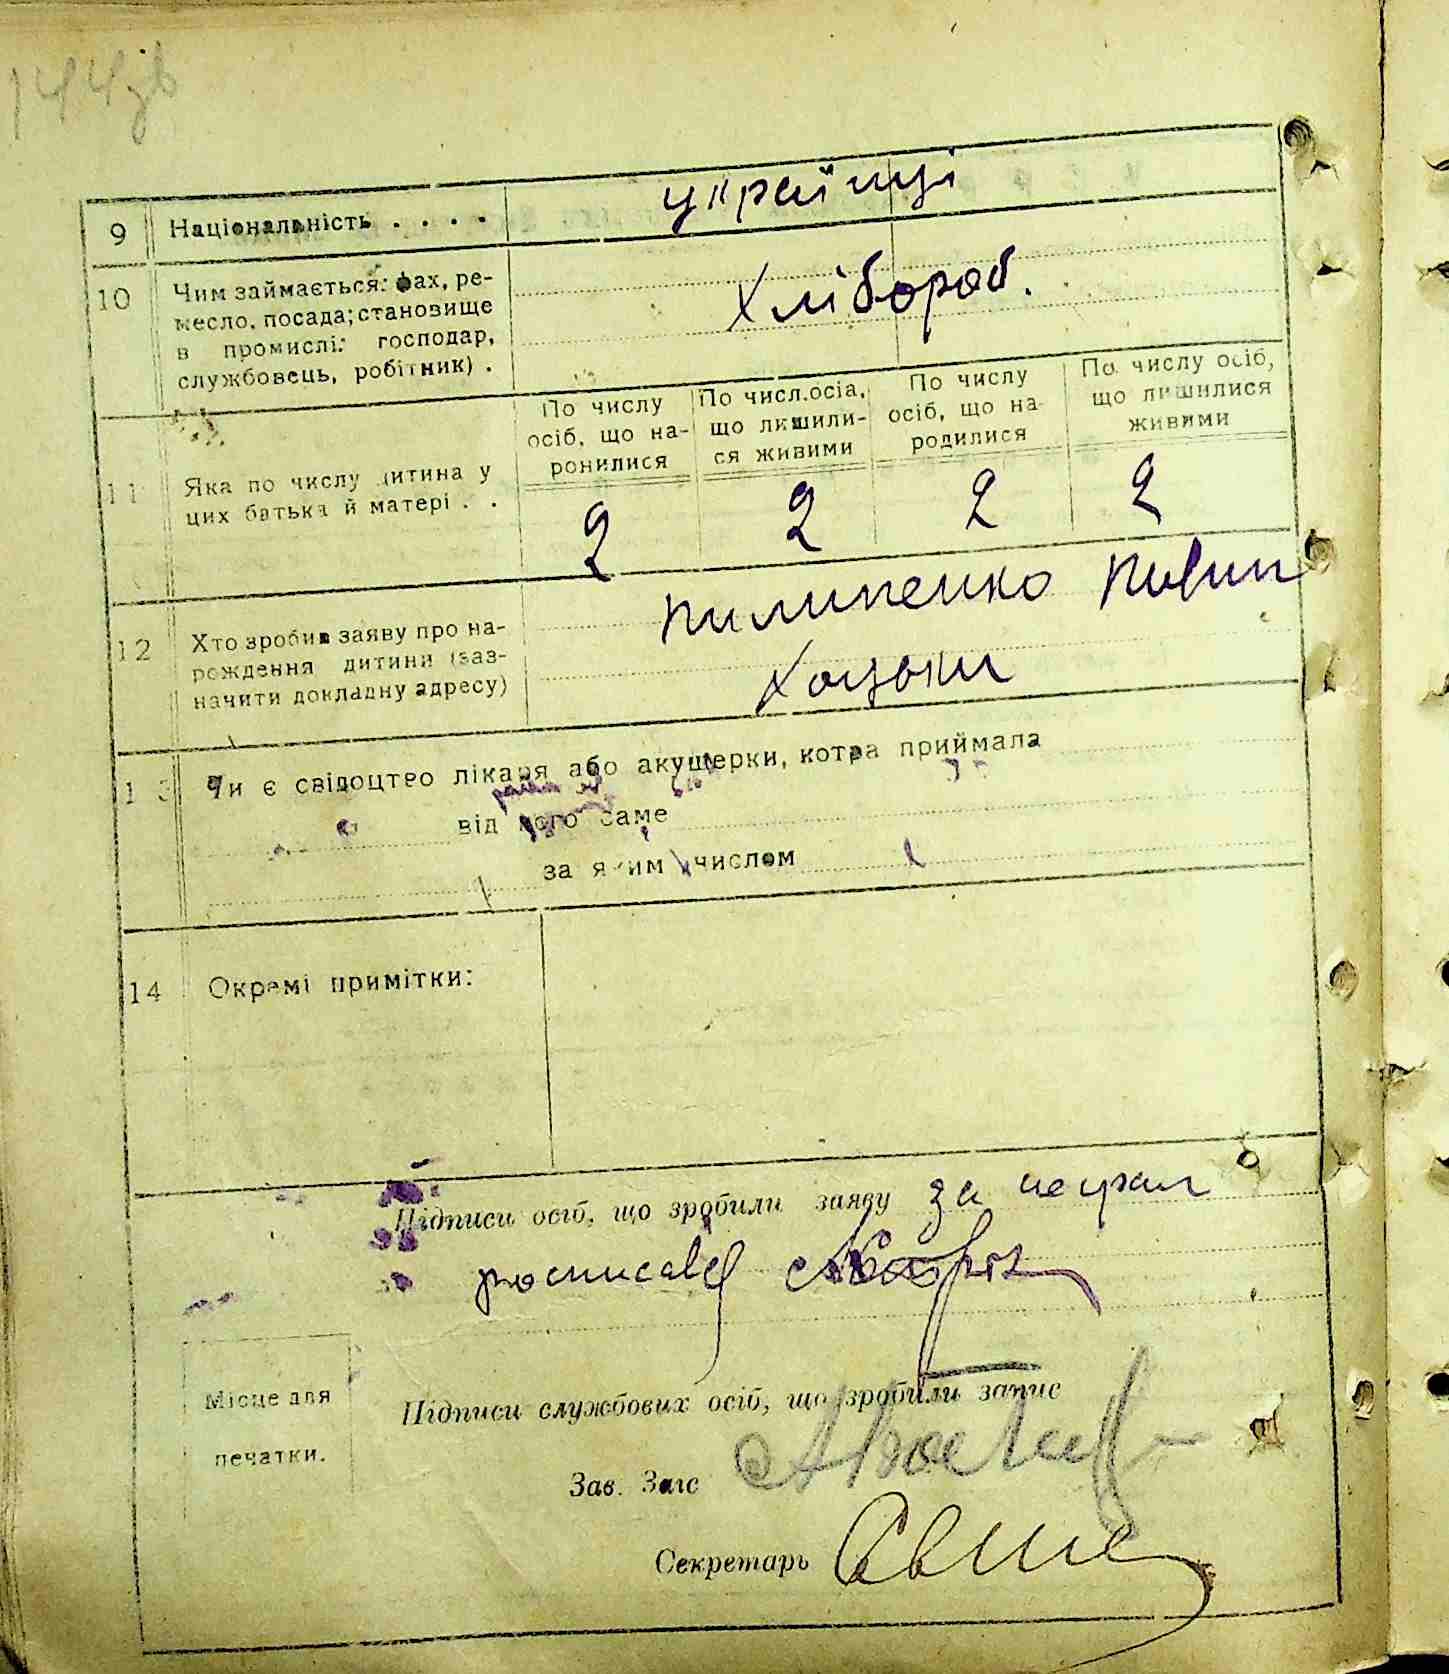 144зв
9 Національність . . . . українці
10 Чим займається: фах, ре-
месло, посада; становище
в промислі: господар,
службовець, робітник) .
Хлібороб.
11 Яка по числу дитина у
цих батька й матері . .
По числу
осіб, що на-
ронилися
По числ.осіа,
що лишили-
ся живими
По числу
осіб, що на-
родилися
По числу осіб,
що лишилися
живими
2 2 2 2
12 Хто зробив заяву про на-
рождення дитини (заз-
начити докладну адресу)
Пилипенко Пивип
Хоцьки
13 Чи є свідоцтво лікаря або акушерки, котра приймала
від кого саме
за яким числом
14 Окремі примітки:
Підписи осіб, що зробили заяву за неграм
росписавс
Місце для
печатки.
Підписи службових осіб, що зробили запис
Зав. Загс
Секретарь